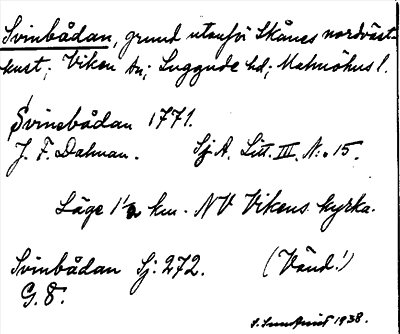 Svinbådan, grund utanför Skånes nordväst-
kust; Viken sn; Luggude hd; Malmöhus l.
Svinsbådan 1771.
J. F. Dalman. Sj. A. Litt. III. N:o 15.
Läge 1½ km. NV Vikens kyrka.
Svinbådan Sj: 272. (Vänd!)
G. 8.
1938.